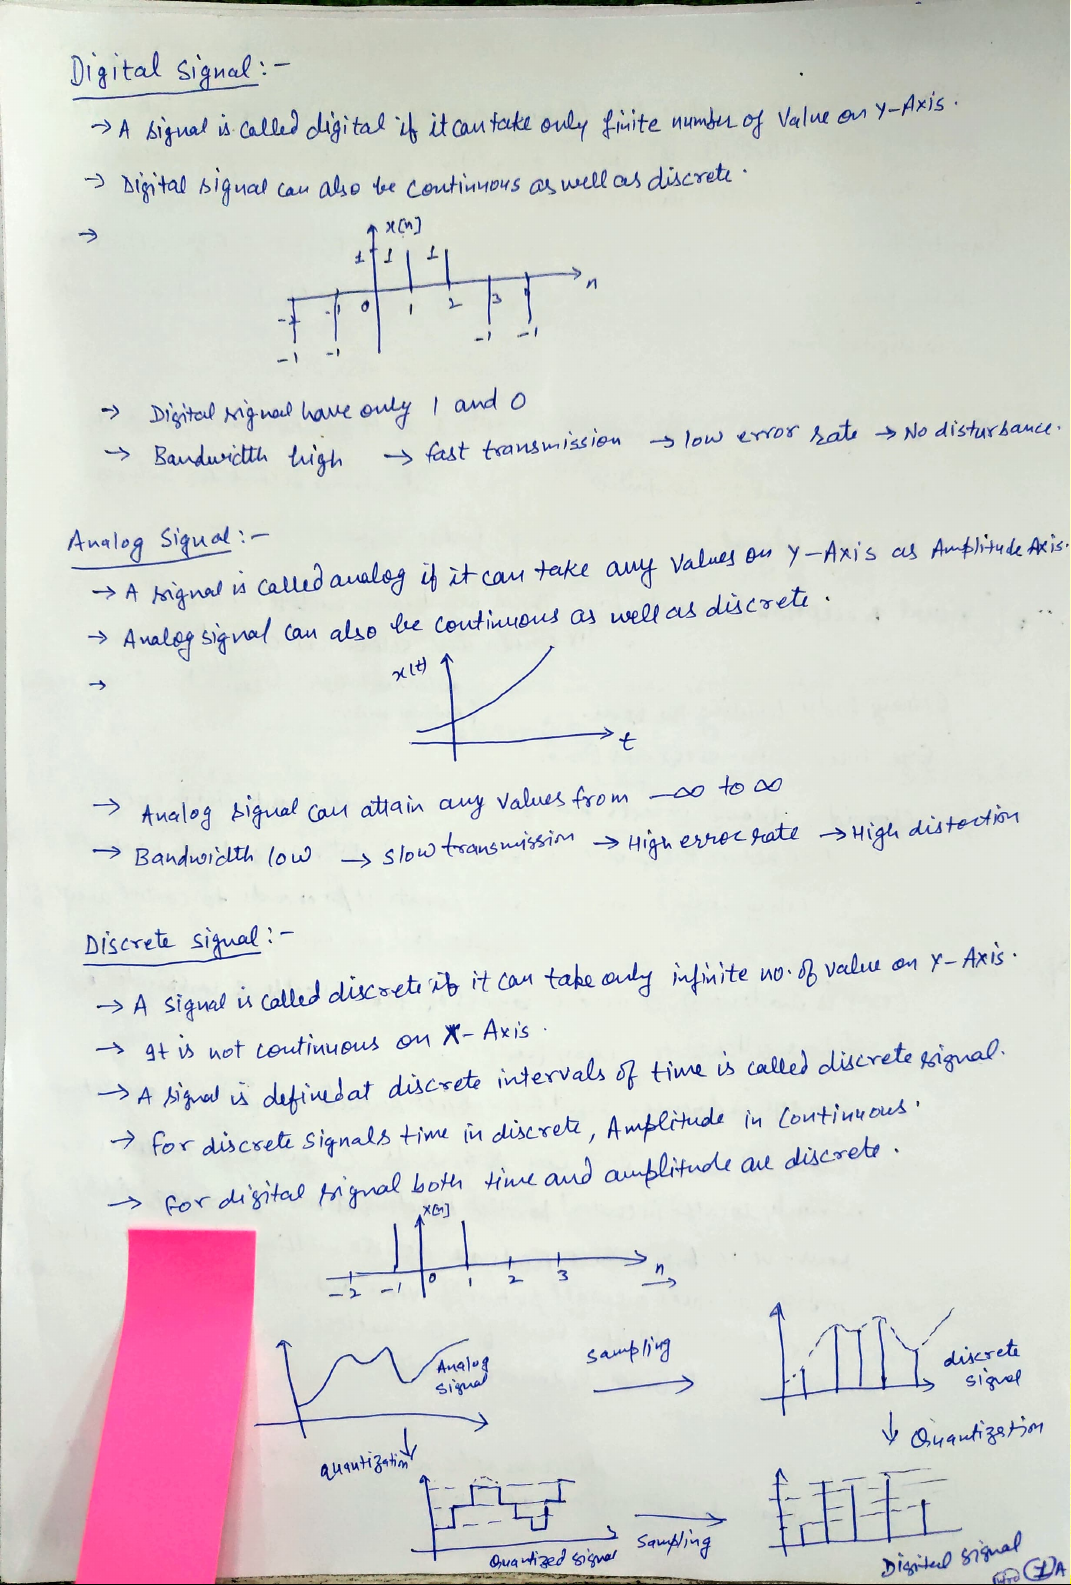 Digital Signal :-
→ A signal is called digital if it can take only finite number of Value on Y-Axis.
→ Digital signal can also be continuous as well as discrete.
→
x[n]
1 1 1
n
-2 -1 0 1 2 3
-1 -1 -1 -1
→ Digital signal have only 1 and 0
→ Bandwidth high → fast transmission → low error rate → No disturbance.
Analog Signal :-
→ A signal is called analog if it can take any values on Y-Axis as Amplitude Axis.
→ Analog signal can also be continuous as well as discrete.
→
x(t)
t
→ Analog signal can attain any values from -∞ to ∞
→ Bandwidth low → Slow transmission → High error rate → High distortion
Discrete signal :-
→ A signal is called discrete if it can take only infinite no. of value on Y-Axis.
→ It is not continuous on X-Axis.
→ A signal is defined at discrete intervals of time is called discrete signal.
→ for discrete signals time in discrete, Amplitude in Continuous.
→ for digital signal both time and amplitude are discrete.
x[n]
-2 -1 0 1 2 3 n
Analog signal
Sampling
discrete signal
quantization
Quantization
Quantized signal
Sampling
Digital signal